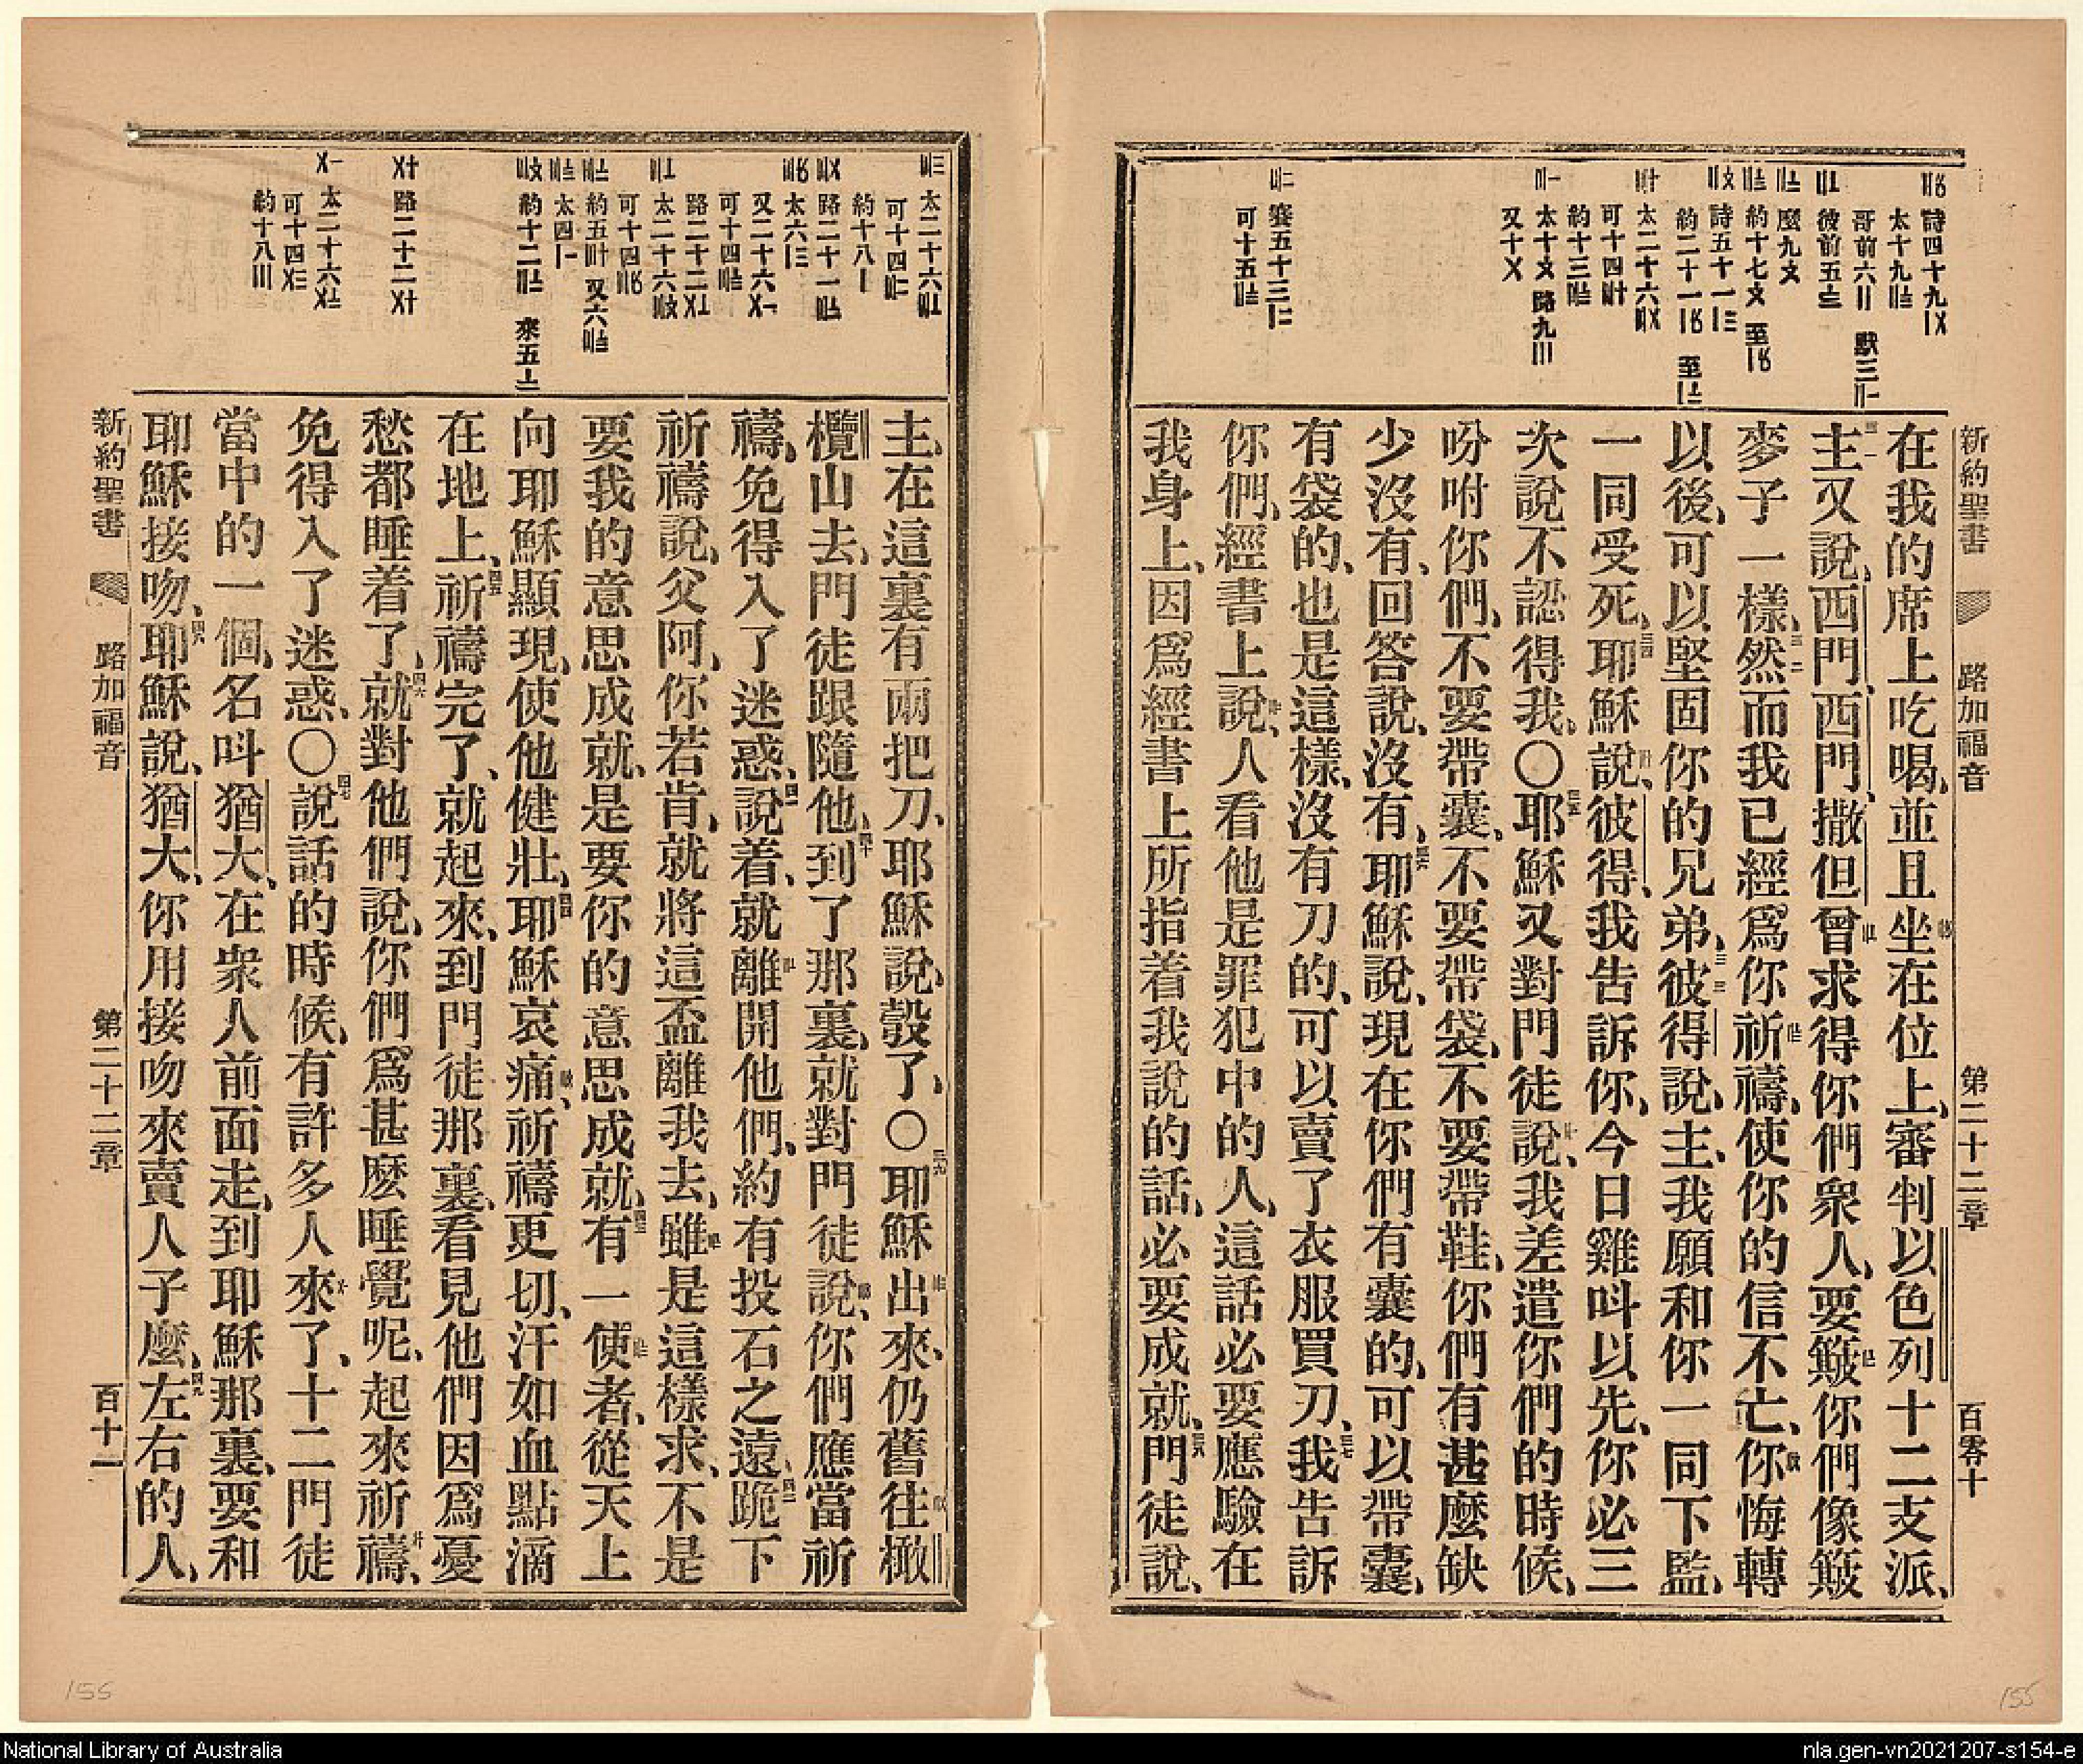 新約聖書 路加福音 第二十二章 百零十
詩四十九〤
太十九
哥前六〢 默三
彼前五
麼九〥
約十七〥 至
詩五十一
約二十一 至
太二十六
可十四
約十三
太十〥 路九〣
又十〤
賽五十三
可十五
在我的席上吃喝、並且坐在位上、審判以色列十二支派、
主又說、西門、西門、撒但曾求得你們衆人、要簸你們像簸
麥子一樣、然而我已經爲你祈禱、使你的信不亡、你悔轉
以後、可以堅固你的兄弟、彼得說、主、我願和你一同下監、
一同受死、耶穌說、彼得、我告訴你、今日雞呌以先、你必三
次說不認得我、〇耶穌又對門徒說、我差遣你們的時候、
吩咐你們、不要帶囊、不要帶袋、不要帶鞋、你們有甚麼缺
少沒有、回答說、沒有、耶穌說、現在你們有囊的、可以帶囊、
有袋的、也是這樣、沒有刀的、可以賣了衣服買刀、我告訴
你們、經書上說、人看他是罪犯中的人、這話必要應驗在
我身上、因爲經書上所指着我說的話、必要成就、門徒說、
太二十六
可十四
約十八〡
路二十一
太六
又二十六
可十四
路二十二
太二十六
可十四
約五 又六
太四
約十二 來五
路二十二
太二十六
可十四
約十八〣
主、在這裏有兩把刀、耶穌說、彀了、〇耶穌出來、仍舊往橄
欖山去、門徒跟隨他、到了那裏、就對門徒說、你們應當祈
禱、免得入了迷惑、說着、就離開他們、約有投石之遠、跪下
祈禱說、父阿、你若肯、就將這盃離我去、雖是這樣求、不是
要我的意思成就、是要你的意思成就、有一使者、從天上
向耶穌顯現、使他健壯、耶穌哀痛、祈禱更切、汗如血點滴
在地上、祈禱完了、就起來、到門徒那裏、看見他們因爲憂
愁都睡着了、就對他們說、你們爲甚麽睡覺呢、起來祈禱、
免得入了迷惑、〇說話的時候、有許多人來了、十二門徒
當中的一個、名呌猶大、在衆人前面走、到耶穌那裏、要和
耶穌接吻、耶穌說、猶大、你用接吻來賣人子麼、左右的人、
新約聖書 路加福音 第二十二章 百十一
155
155
National Library of Australia
nla.gen-vn2021207-s154-e